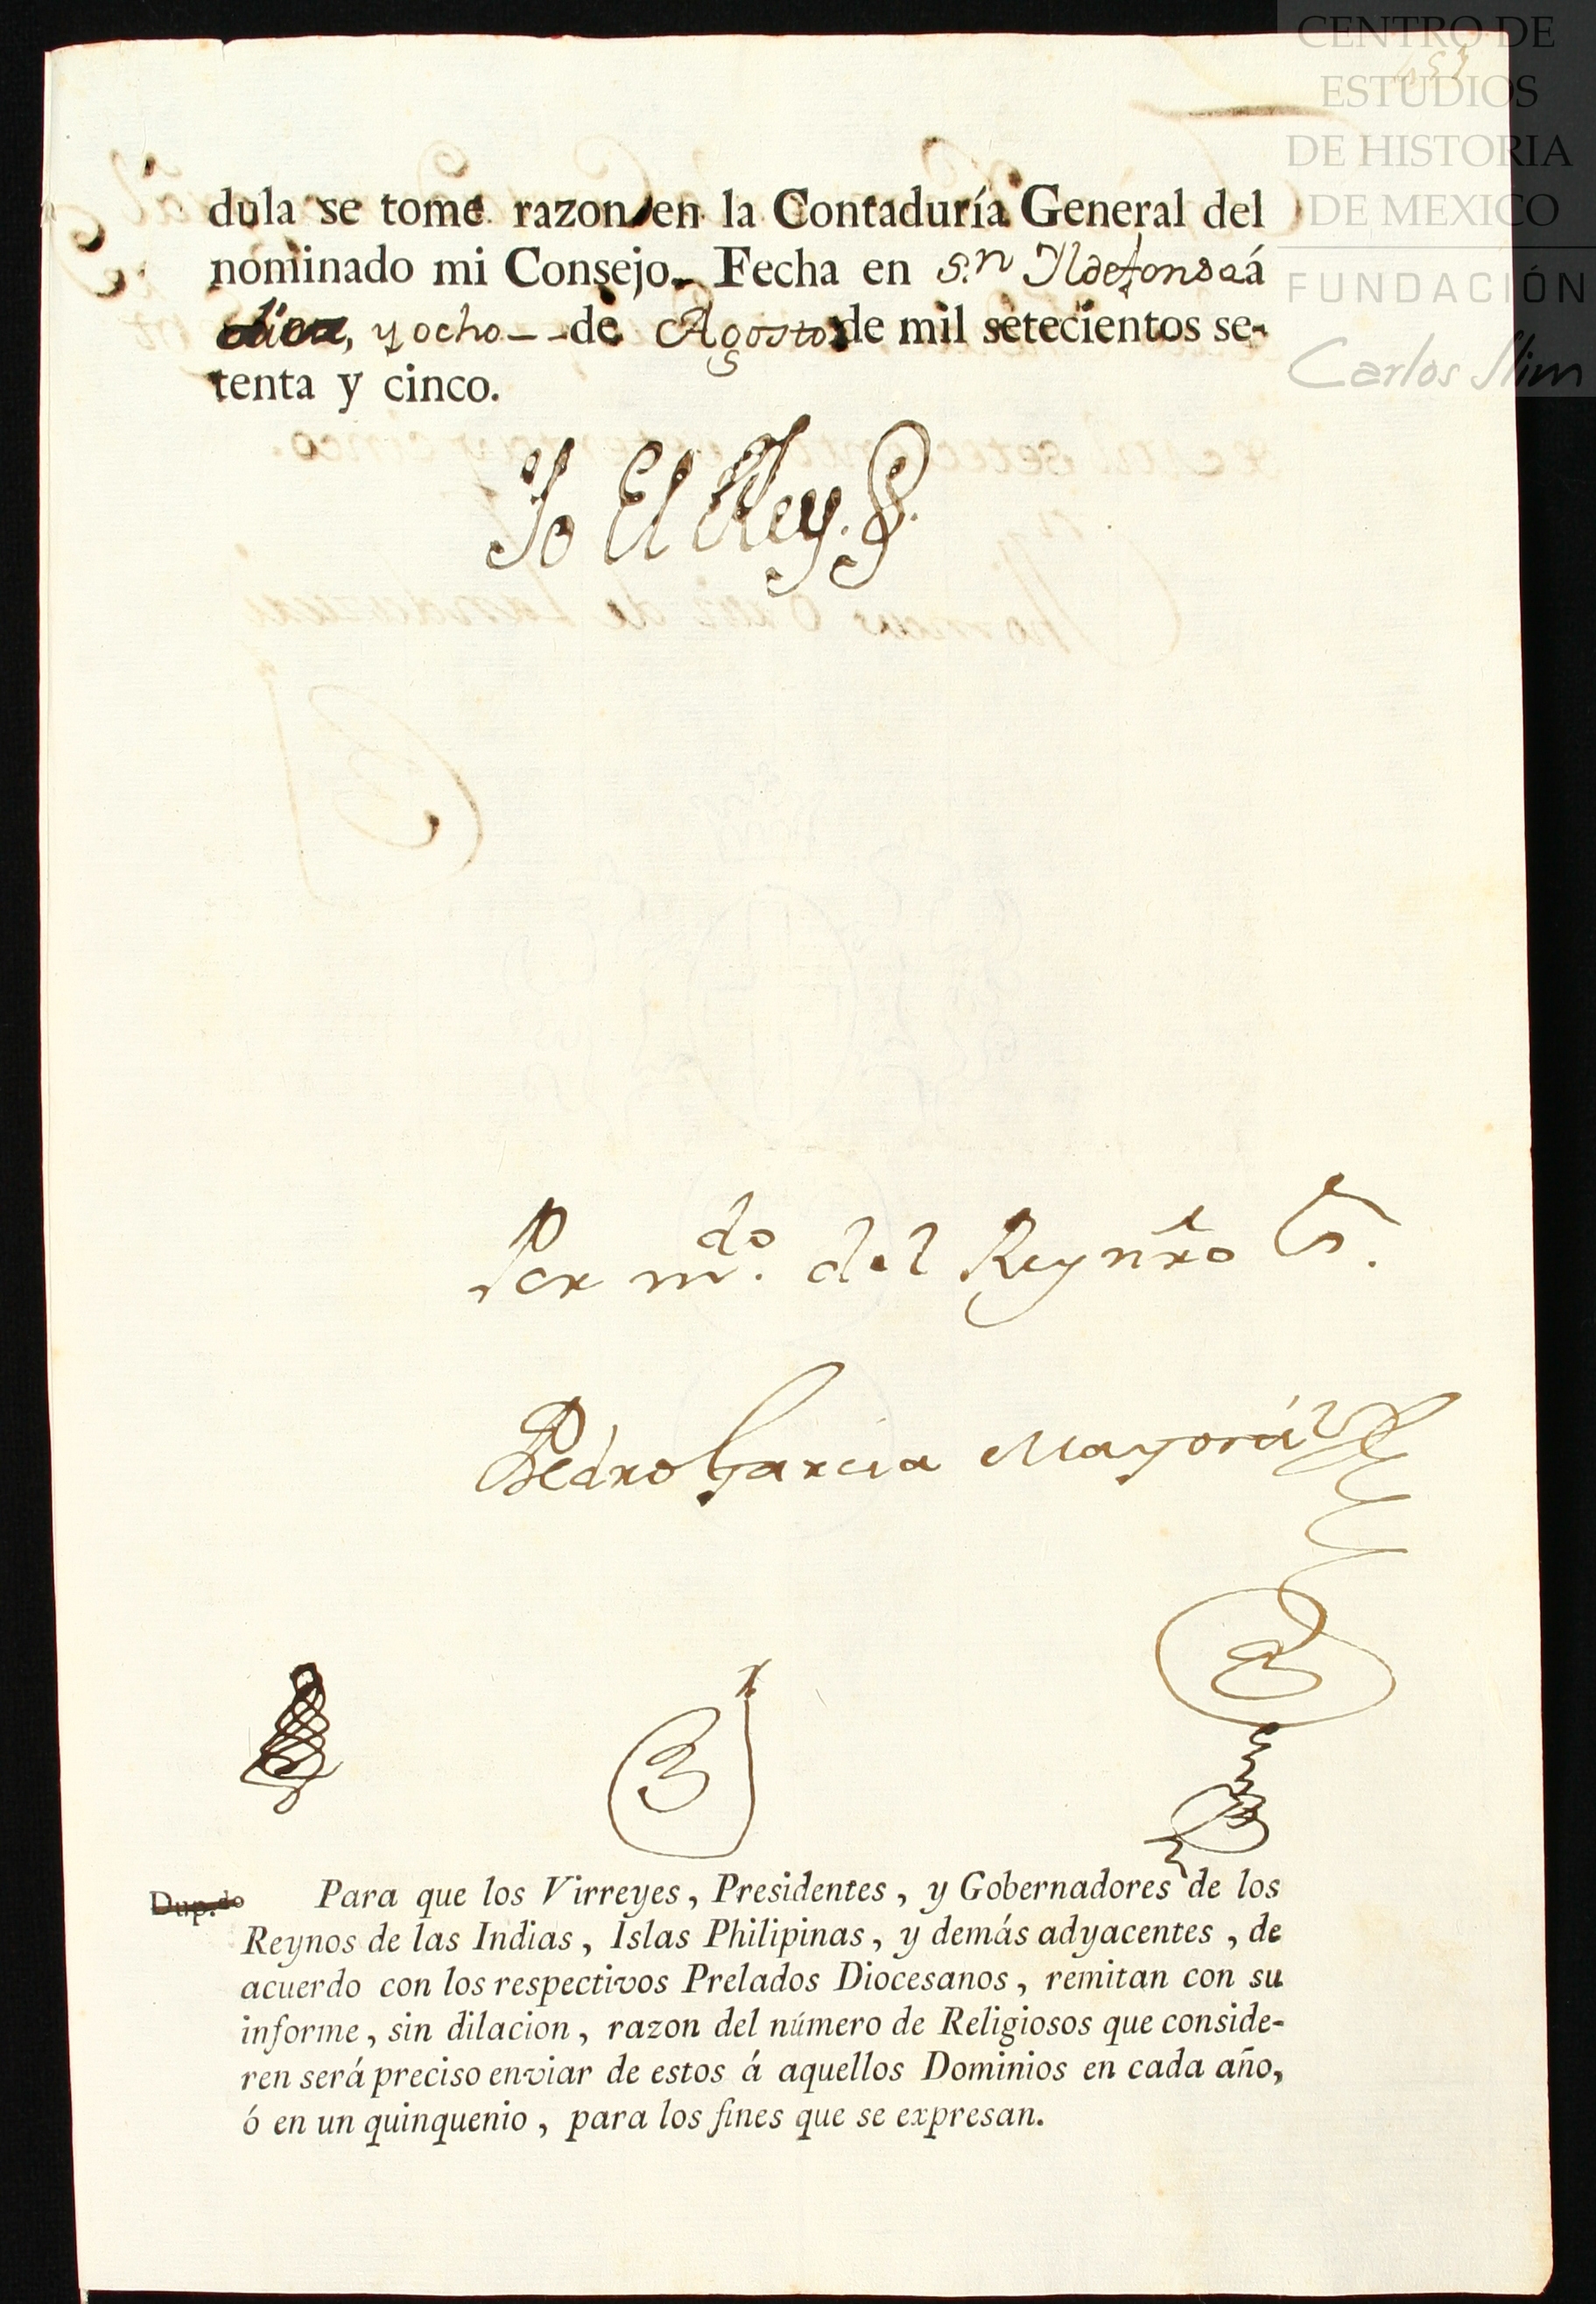 CENTRO DE
ESTUDIOS
DE HISTORIA
DE MEXICO
FUNDACIÓN
Carlos Slim
dula se tome razon en la Contaduría General del
nominado mi Consejo. Fecha en s.n Ildefonso á
diez, y ocho -- de Agosto de mil setecientos se-
tenta y cinco.
Yo El Rey.
Por m.do del Rey nro S.
Pedro Garcia Mayorál
Dup.do Para que los Virreyes, Presidentes, y Gobernadores de los
Reynos de las Indias, Islas Philipinas, y demás adyacentes, de
acuerdo con los respectivos Prelados Diocesanos, remitan con su
informe, sin dilacion, razon del número de Religiosos que conside-
ren será preciso enviar de estos á aquellos Dominios en cada año,
ó en un quinquenio, para los fines que se expresan.